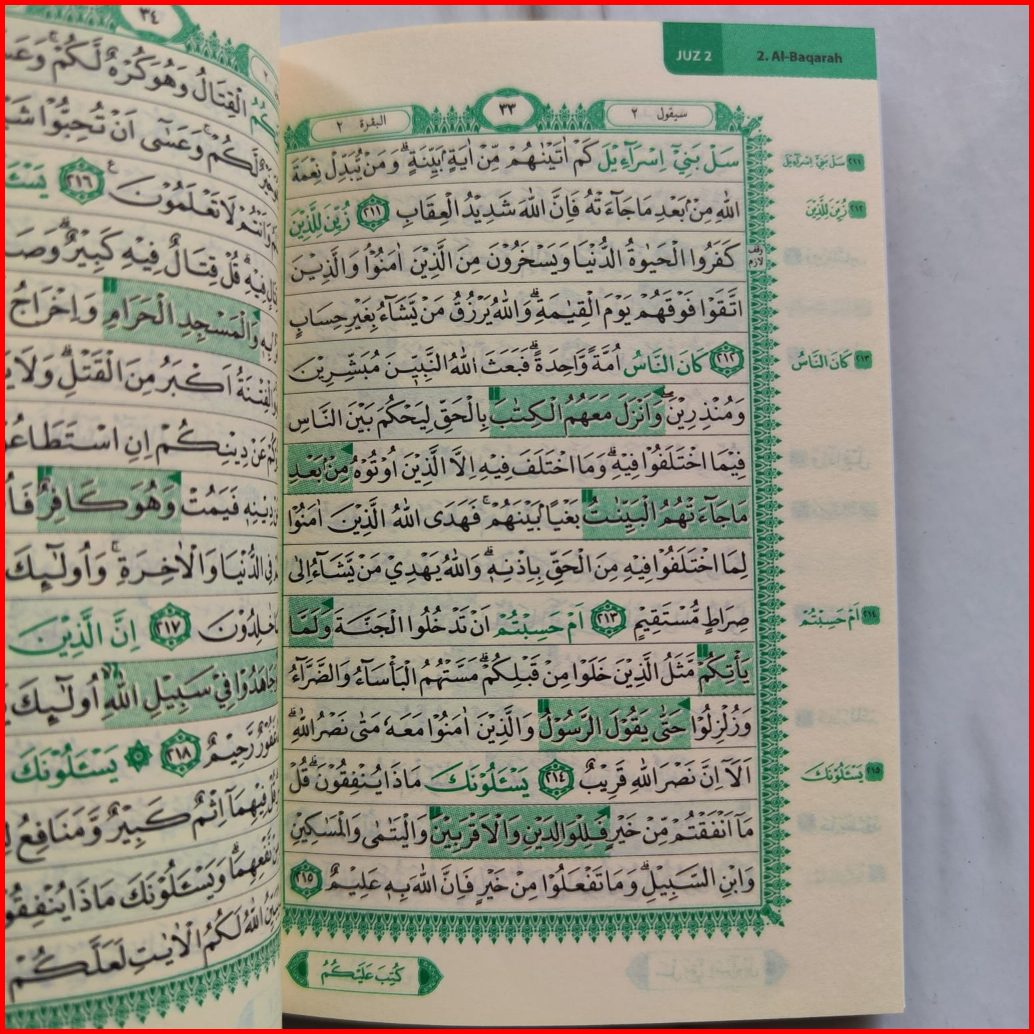 JUZ 2
2. Al-Baqarah
سيقول ٢
٣٣
البقرة ٢
سَلْ بَنِيْٓ اِسْرَاۤءِيْلَ كَمْ اٰتَيْنٰهُمْ مِّنْ اٰيَةٍ ۢ بَيِّنَةٍ ۗ وَمَنْ يُّبَدِّلْ نِعْمَةَ
اللّٰهِ مِنْۢ بَعْدِ مَا جَاۤءَتْهُ فَاِنَّ اللّٰهَ شَدِيْدُ الْعِقَابِ ٢١١ زُيِّنَ لِلَّذِيْنَ
كَفَرُوا الْحَيٰوةُ الدُّنْيَا وَيَسْخَرُوْنَ مِنَ الَّذِيْنَ اٰمَنُوْا ۘ وَالَّذِيْنَ
اتَّقَوْا فَوْقَهُمْ يَوْمَ الْقِيٰمَةِ ۗ وَاللّٰهُ يَرْزُقُ مَنْ يَّشَاۤءُ بِغَيْرِ حِسَابٍ
٢١٢ كَانَ النَّاسُ اُمَّةً وَّاحِدَةً ۗ فَبَعَثَ اللّٰهُ النَّبِيّٖنَ مُبَشِّرِيْنَ
وَمُنْذِرِيْنَ ۖ وَاَنْزَلَ مَعَهُمُ الْكِتٰبَ بِالْحَقِّ لِيَحْكُمَ بَيْنَ النَّاسِ
فِيْمَا اخْتَلَفُوْا فِيْهِ ۗ وَمَا اخْتَلَفَ فِيْهِ اِلَّا الَّذِيْنَ اُوْتُوْهُ مِنْۢ بَعْدِ
مَا جَاۤءَتْهُمُ الْبَيِّنٰتُ بَغْيًا ۢ بَيْنَهُمْ ۚ فَهَدَى اللّٰهُ الَّذِيْنَ اٰمَنُوْا
لِمَا اخْتَلَفُوْا فِيْهِ مِنَ الْحَقِّ بِاِذْنِهٖ ۗ وَاللّٰهُ يَهْدِيْ مَنْ يَّشَاۤءُ اِلٰى
صِرَاطٍ مُّسْتَقِيْمٍ ٢١٣ اَمْ حَسِبْتُمْ اَنْ تَدْخُلُوا الْجَنَّةَ وَلَمَّا
يَأْتِكُمْ مَّثَلُ الَّذِيْنَ خَلَوْا مِنْ قَبْلِكُمْ ۗ مَسَّتْهُمُ الْبَأْسَاۤءُ وَالضَّرَّاۤءُ
وَزُلْزِلُوْا حَتّٰى يَقُوْلَ الرَّسُوْلُ وَالَّذِيْنَ اٰمَنُوْا مَعَهٗ مَتٰى نَصْرُ اللّٰهِ ۗ
اَلَآ اِنَّ نَصْرَ اللّٰهِ قَرِيْبٌ ٢١٤ يَسْـَٔلُوْنَكَ مَاذَا يُنْفِقُوْنَ ۗ قُلْ
مَآ اَنْفَقْتُمْ مِّنْ خَيْرٍ فَلِلْوَالِدَيْنِ وَالْاَقْرَبِيْنَ وَالْيَتٰمٰى وَالْمَسٰكِيْنِ
وَابْنِ السَّبِيْلِ ۗ وَمَا تَفْعَلُوْا مِنْ خَيْرٍ فَاِنَّ اللّٰهَ بِهٖ عَلِيْمٌ ٢١٥
كُتِبَ عَلَيْكُمُ
٢١١ سَلْ بَنِيْٓ اِسْرَاۤءِيْلَ
٢١٢ زُيِّنَ لِلَّذِيْنَ
وقف لازم
٢١٣ كَانَ النَّاسُ
٢١٤ اَمْ حَسِبْتُمْ
٢١٥ يَسْـَٔلُوْنَكَ
٣٤
الْقِتَالُ وَهُوَ كُرْهٌ لَّكُمْ ۚ
لَّكُمْ ۚ وَعَسٰٓى اَنْ تُحِبُّوْا
وَاَنْتُمْ لَا تَعْلَمُوْنَ ࣖ ٢١٦
فِيْهِ ۗ قُلْ قِتَالٌ فِيْهِ كَبِيْرٌ ۗ
وَالْمَسْجِدِ الْحَرَامِ وَاِخْرَاجُ
اَكْبَرُ مِنَ الْقَتْلِ ۗ وَلَا
عَنْ دِيْنِكُمْ اِنِ
دِيْنِهٖ فَيَمُتْ وَهُوَ كَافِرٌ
فِى الدُّنْيَا وَالْاٰخِرَةِ ۚ وَاُولٰۤىِٕكَ
خٰلِدُوْنَ ٢١٧ اِنَّ الَّذِيْنَ
وَجَاهَدُوْا فِيْ سَبِيْلِ اللّٰهِ ۙ اُولٰۤىِٕكَ
غَفُوْرٌ رَّحِيْمٌ ٢١٨ ۞ يَسْـَٔلُوْنَكَ
قُلْ فِيْهِمَآ اِثْمٌ كَبِيْرٌ وَّمَنَافِعُ
مِنْ نَّفْعِهِمَا ۗ وَيَسْـَٔلُوْنَكَ مَاذَا
اللّٰهُ لَكُمُ الْاٰيٰتِ لَعَلَّكُمْ